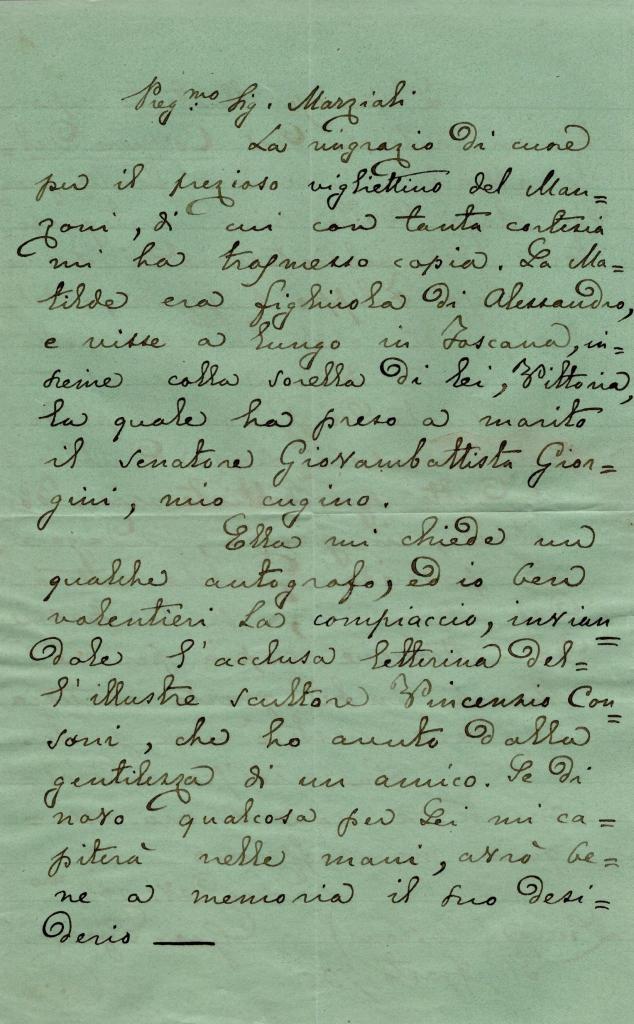 Preg.mo Sig. Marziali
La ringrazio di cuore
per il prezioso vigliettino del Man=
zoni, di cui con tanta cortesia
mi ha trasmesso copia. La Ma=
tilde era figliuola di Alessandro,
e visse a lungo in Toscana, in=
sieme colla sorella di lei, Vittoria,
la quale ha preso a marito
il senatore Giovambattista Gior=
gini, mio cugino.
Ella mi chiede un
qualche autografo, ed io ben
volentieri La compiaccio, invian=
dole l'acclusa letterina del=
l'illustre scultore Vincenzio Con=
soni, che ho avuto dalla
gentilezza di un amico. Se di
novo qualcosa per Lei mi ca=
piterà nelle mani, avrò be=
ne a memoria il suo desi=
derio —